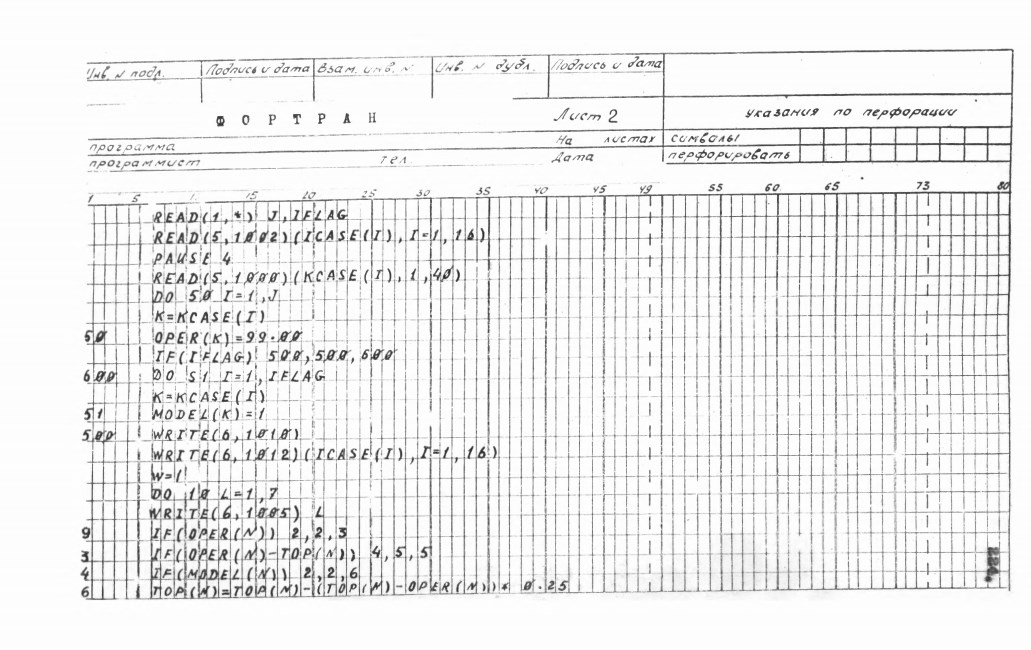 Инв. N подл. Подпись и дата Взам. инв. N Инв. N дубл. Подпись и дата
ФОРТРАН Лист 2 указания по перфорации
программа На листах символы
программист тел Дата перфорировать
1 5 15 20 25 30 35 40 45 49 55 60 65 73 80
READ(1,*) J,IFLAG
READ(5,1002)(ICASE(I),I=1,16)
PAUSE 4
READ(5,1000)(KCASE(I),1,40)
DO 50 I=1,J
K=KCASE(I)
50 OPER(K)=99.00
IF(IFLAG) 500,500,600
600 DO 51 I=1,IFLAG
K=KCASE(I)
51 MODEL(K)=1
500 WRITE(6,1010)
WRITE(6,1012)(ICASE(I),I=1,16)
W=1
DO 10 L=1,7
WRITE(6,1005) L
9 IF(OPER(N)) 2,2,3
3 IF(OPER(N)-TOP(N)) 4,5,5
4 IF(MODEL(N)) 2,2,6
6 TOP(N)=TOP(N)-(TOP(N)-OPER(N))* 0.25
224.